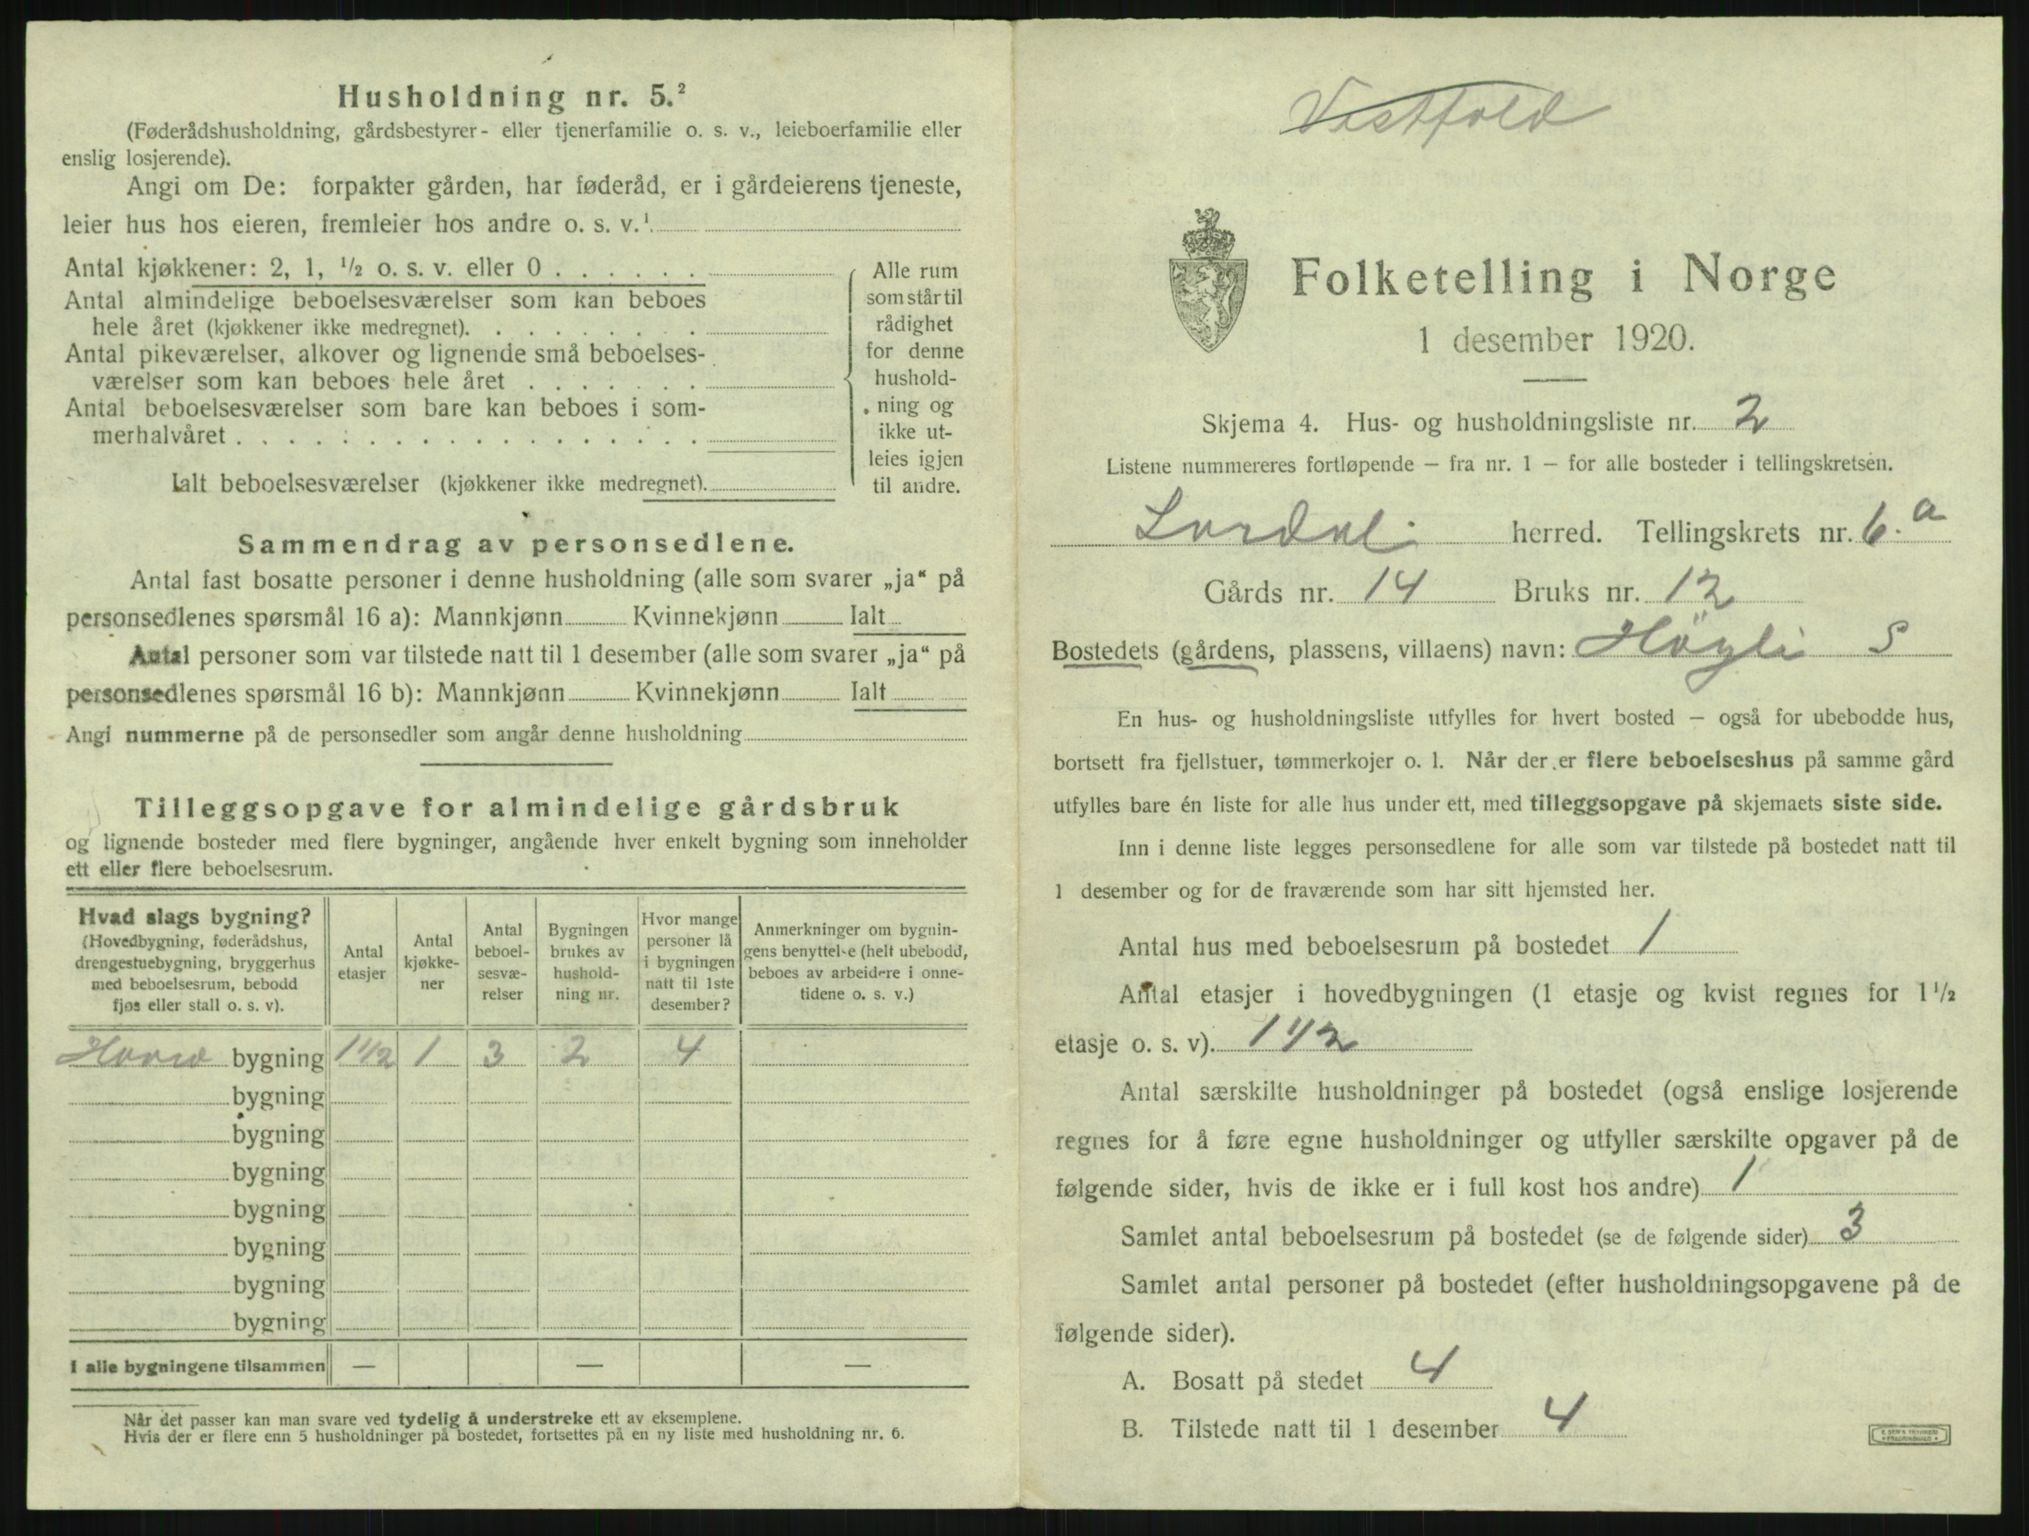 Husholdning nr. 5.²
(Føderådshusholdning, gårdsbestyrer- eller tjenerfamilie o. s. v., leieboerfamilie eller
enslig losjerende).
Angi om De: forpakter gården, har føderåd, er i gårdeierens tjeneste,
leier hus hos eieren, fremleier hos andre o. s. v.¹
Antal kjøkkener: 2, 1, ½ o. s. v. eller 0 . . . . . .
Antal almindelige beboelsesværelser som kan beboes
hele året (kjøkkener ikke medregnet). . . . . . . . .
Antal pikeværelser, alkover og lignende små beboelses-
værelser som kan beboes hele året . . . . . . .
Antal beboelsesværelser som bare kan beboes i som-
merhalvåret . . . . . . . . . . . . . . . . . .
Ialt beboelsesværelser (kjøkkener ikke medregnet).
Alle rum
som står til
rådighet
for denne
hushold-
ning og
ikke ut-
leies igjen
til andre.
Sammendrag av personsedlene.
Antal fast bosatte personer i denne husholdning (alle som svarer „ja“ på
personsedlenes spørsmål 16 a): Mannkjønn Kvinnekjønn Ialt
Antal personer som var tilstede natt til 1 desember (alle som svarer „ja“ på
personsedlenes spørsmål 16 b): Mannkjønn Kvinnekjønn Ialt
Angi nummerne på de personsedler som angår denne husholdning
Tilleggsopgave for almindelige gårdsbruk
og lignende bosteder med flere bygninger, angående hver enkelt bygning som inneholder
ett eller flere beboelsesrum.
Hvad slags bygning?
(Hovedbygning, føderådshus,
drengestuebygning, bryggerhus
med beboelsesrum, bebodd
fjøs eller stall o. s. v).
Antal
etasjer
Antal
kjøkke-
ner
Antal
beboel-
sesvæ-
relser
Bygningen
brukes av
hushold-
ning nr.
Hvor mange
personer lå
i bygningen
natt til 1ste
desember?
Anmerkninger om bygnin-
gens benyttelse (helt ubebodd,
beboes av arbeidere i onne-
tidene o. s. v.)
bygning 1½ 1 3 2 4
bygning
bygning
bygning
bygning
bygning
bygning
bygning
I alle bygningene tilsammen — — —
Når det passer kan man svare ved tydelig å understreke ett av eksemplene.
Hvis der er flere enn 5 husholdninger på bostedet, fortsettes på en ny liste med husholdning nr. 6.
Vestfold
Folketelling i Norge
1 desember 1920.
Skjema 4. Hus- og husholdningsliste nr. 2
Listene nummereres fortløpende – fra nr. 1 – for alle bosteder i tellingskretsen.
Lardal herred. Tellingskrets nr. 6.a
Gårds nr. 14 Bruks nr. 12
Bostedets (gårdens, plassens, villaens) navn: Høgli S
En hus- og husholdningsliste utfylles for hvert bosted – også for ubebodde hus,
bortsett fra fjellstuer, tømmerkojer o. l. Når der er flere beboelseshus på samme gård
utfylles bare én liste for alle hus under ett, med tilleggsopgave på skjemaets siste side.
Inn i denne liste legges personsedlene for alle som var tilstede på bostedet natt til
1 desember og for de fraværende som har sitt hjemsted her.
Antal hus med beboelsesrum på bostedet 1
Antal etasjer i hovedbygningen (1 etasje og kvist regnes for 1½
etasje o. s. v). 1½
Antal særskilte husholdninger på bostedet (også enslige losjerende
regnes for å føre egne husholdninger og utfyller særskilte opgaver på de
følgende sider, hvis de ikke er i full kost hos andre) 1
Samlet antal beboelsesrum på bostedet (se de følgende sider) 3
Samlet antal personer på bostedet (efter husholdningsopgavene på de
følgende sider).
A. Bosatt på stedet 4
B. Tilstede natt til 1 desember 4